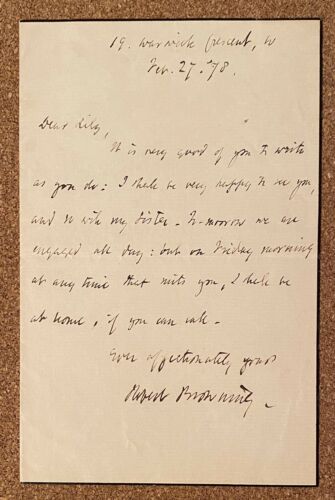 19. Warwick Crescent, W
Feb. 27. '78.
Dear Lily,
It is very good of you to write
as you do: I shall be very happy to see you,
and so will my Sister. To-morrow we are
engaged all day: but on Friday morning
at any time that suits you, I shall be
at home, if you can call.
Ever affectionately yours
Robert Browning.